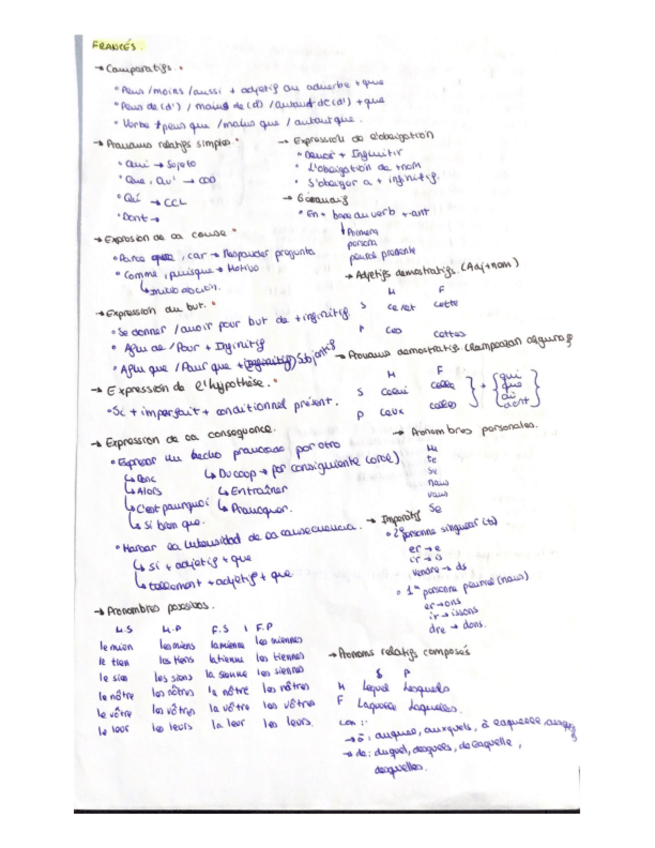 FRANCÉS.
→ Comparatifs.
• Plus / moins / aussi + adjetif ou adverbe + que
• Plus de (d') / moins de (d) / autant de (d') + que
• Verbe + plus que / moins que / autant que.
→ Pronoms relatifs simples
• Qui → Sujeto
• Que, Qu' → COD
• Où → CCL
• Dont →
→ Expresion de la cause
• Parce que, car → Responder pregunta
• Comme, puisque → Motivo
→ Expression du but.
• Se donner / avoir pour but de + infinitif
• Afin de / Pour + Infinitif
• Afin que / Pour que + Subjontif
→ Expression de l'hypothèse.
• Si + imparfait + conditionnel présent.
→ Expression de la consequence.
• Expresar un hecho provocado por otro
↳ Donc
↳ Alors
↳ C'est pourquoi
↳ Si bien que.
↳ Du coup → por consiguiente (oral)
↳ Entraîner
↳ Provoquer.
• Marcar la intensidad de la consecuencia.
↳ Si + adjetif + que
↳ tellement + adjetif + que
→ Pronombres posesivos.
M.S M.P F.S F.P
le mien les miens la mienne les miennes
le tien les tiens la tienne les tiennes
le sien les siens la sienne les siennes
le nôtre les nôtres la nôtre les nôtres
le vôtre les vôtres la vôtre les vôtres
le leur les leurs la leur les leurs.
→ Expression de l'obligation
• Devoir + Infinitif
• L'obligation de + nom
• S'obliger a + infinitif.
→ Gérondif
• En + base du verb + ant
Primera
persona
plural presente
→ Adjetifs demostratifs (Adj + nom)
M F
S ce/cet cette
P ces cettes
→ Pronoms demostratifs
M F
S celui celle
P ceux celles
+ qui
que
où
dont
→ Pronombres personales.
Me
te
se
nous
vous
se
→ Imperatif
• 2ª personne singulier (tu)
er → e
ir → is
vendre → ds
• 1ª personne pluriel (nous)
er → ons
ir → issons
dre → dons.
→ Pronoms relatifs composés
S P
M Lequel Lesquels
F Laquelle Lesquelles.
con:
→ à: auquel, auxquels, à laquelle,
→ de: duquel, desquels, de laquelle,
desquelles.